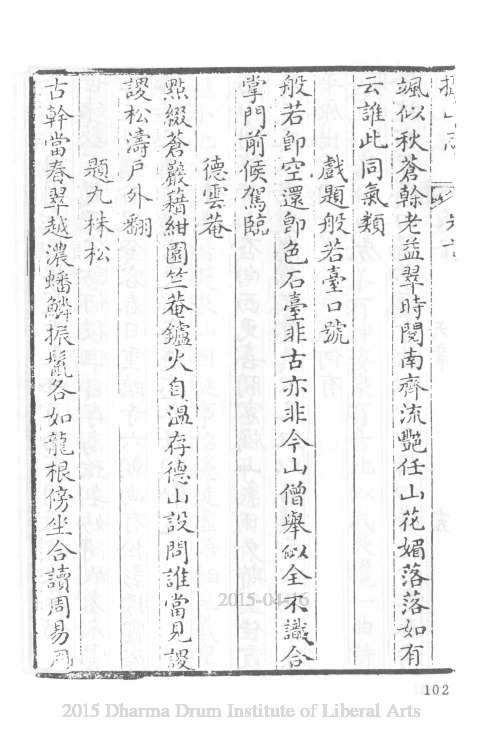 颯似秋蒼榦老益翠時閱南齊流艷任山花媚落落如有
云誰此同氣類
戲題般若臺口號
般若卽空還卽色石臺非古亦非今山僧舉似全不識合
掌門前候駕臨
德雲菴
點綴蒼巖藉紺園竺菴鑪火自溫存德山設問誰當見謖
謖松濤戶外翻
題九株松
古幹當春翠越濃蟠鱗振鬣各如龍根傍坐合讀周易
102
2015-04-16
2015 Dharma Drum Institute of Liberal Arts